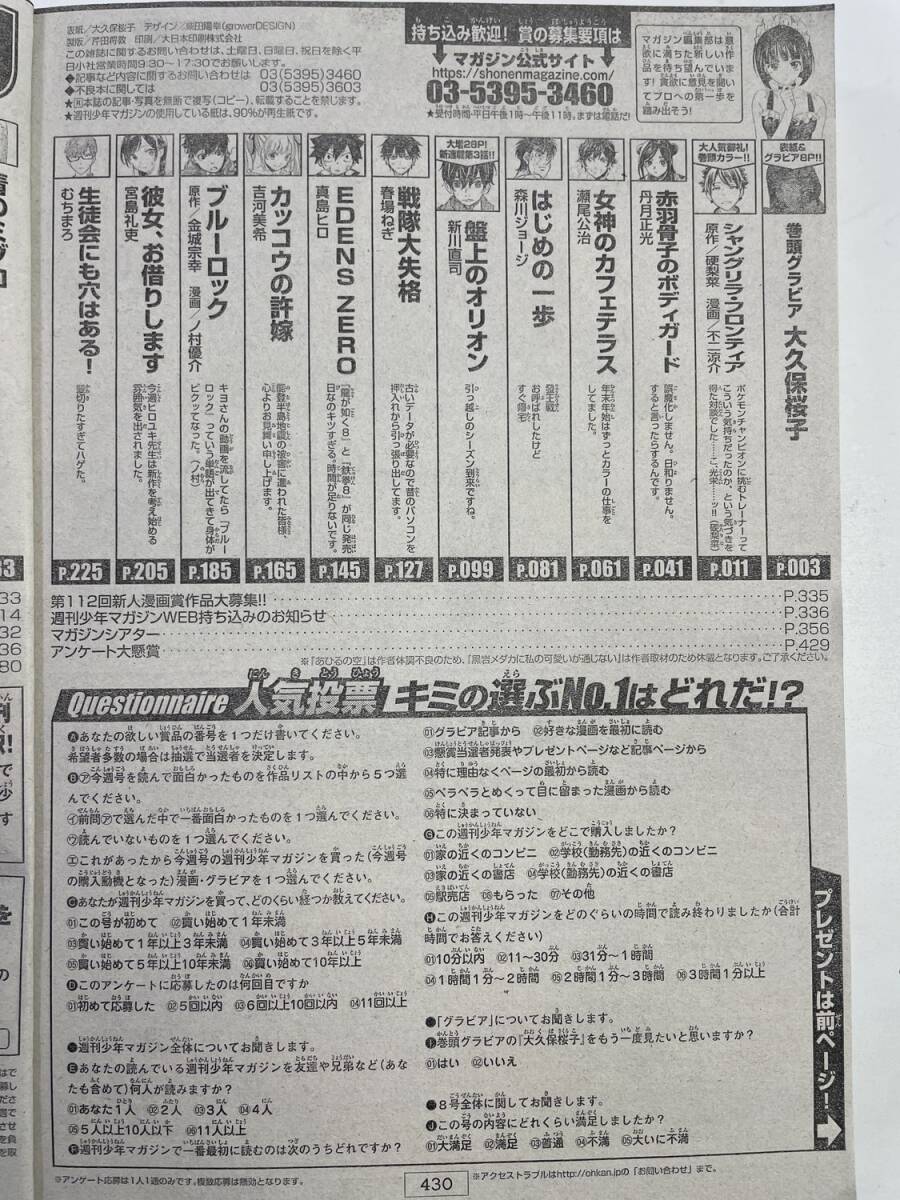 表紙/大久保桜子 デザイン/柴田陽幸(growerDESIGN)
製版/芹田荷敦 印刷/大日本印刷株式会社
この雑誌に関するお問い合わせは、土曜日、日曜日、祝日を除く平
日小社営業時間9:30〜17:30でお願いします。
◆記事など内容に関するお問い合わせは 03(5395)3460
◆不良本に関しては 03(5395)3603
★Ⓡ本誌の記事・写真を無断で複写(コピー)、転載することを禁じます。
★週刊少年マガジンの使用している紙は、90%が再生紙です。
持ち込み歓迎! 賞の募集要項は
マガジン公式サイト
https://shonenmagazine.com/
03-5395-3460
★受付時間・平日午後1時〜午後11時。まずは電話だ!
マガジン編集部は意
欲に満ちた新しい作
品を待ち望んでいま
す!貪欲に意見を聞い
てプロへの第一歩を
踏み出そう!
表紙&
グラビア8P!!
巻頭グラビア 大久保桜子
P.003
大人気御礼!
巻頭カラー!!
シャングリラ・フロンティア
原作/硬梨菜 漫画/不二涼介
ポケモンチャンピオンに挑むトレーナーって
こういう気持ちだったのか、という気づきを
得た対談でした……こ、光栄…ッ!!(硬梨菜)
P.011
赤羽骨子のボディガード
丹月正光
誤魔化しません。日和りません。
すると言ったらするんです。
P.041
女神のカフェテラス
瀬尾公治
年末年始はずっとカラーの仕事を
してました。
P.061
はじめの一歩
森川ジョージ
竜王戦
お呼ばれしたけど
すぐ帰宅
P.081
大増28P!
新連載第3話!!
盤上のオリオン
新川直司
引っ越しのシーズン到来ですね。
P.099
戦隊大失格
春場ねぎ
古いデータが必要なので昔のパソコンを
押入れから引っ張り出してます。
P.127
EDENS ZERO
真島ヒロ
「龍が如く8」と「鉄拳8」が同じ発売
日なのキツすぎる。時間が足りないです。
P.145
カッコウの許嫁
吉河美希
能登半島地震の被害に遭われた皆様、
心よりお見舞い申し上げます。
P.165
ブルーロック
原作/金城宗幸 漫画/ノ村優介
キヨさんの動画を流してたら「ブルー
ロック」っていう単語が出てきて身体が
ビクッてなった。(ノ村)
P.185
彼女、お借りします
宮島礼吏
今週ヒロユキ先生は新作を考え始める
雰囲気を出されました。
P.205
生徒会にも穴はある!
むちまろ
裏切りたすぎてハゲた。
P.225
第112回新人漫画賞作品大募集!! P.335
週刊少年マガジンWEB持ち込みのお知らせ P.336
マガジンシアター P.356
アンケート大懸賞 P.429
※「あひるの空」は作者体調不良のため、「黒岩メダカに私の可愛いが通じない」は作者取材のため休載となります。ご了承ください。
Questionnaire 人気投票 キミの選ぶNo.1はどれだ!?
Ⓐあなたの欲しい賞品の番号を1つだけ書いてください。
希望者多数の場合は抽選で当選者を決定します。
Ⓑ㋐今週号を読んで面白かったものを作品リストの中から5つ選
んでください。
㋑前問㋐で選んだ中で一番面白かったものを1つ選んでください。
㋒読んでいないものを1つ選んでください。
㋓これがあったから今週号の週刊少年マガジンを買った(今週号
の購入動機となった)漫画・グラビアを1つ選んでください。
Ⓒあなたが週刊少年マガジンを買って、どのくらい経つか教えてください。
01この号が初めて 02買い始めて1年未満
03買い始めて1年以上3年未満 04買い始めて3年以上5年未満
05買い始めて5年以上10年未満 06買い始めて10年以上
Ⓓこのアンケートに応募したのは何回目ですか
01初めて応募した 02 5回以内 03 6回以上10回以内 04 11回以上
●週刊少年マガジン全体についてお聞きします。
Ⓔあなたの読んでいる週刊少年マガジンを友達や兄弟など(あな
たも含めて)何人が読みますか?
01あなた1人 02 2人 03 3人 04 4人
05 5人以上10人以下 06 11人以上
Ⓕ週刊少年マガジンで一番最初に読むのは次のうちどれですか?
01グラビア記事から 02好きな漫画を最初に読む
03懸賞当選者発表やプレゼントページなど記事ページから
04特に理由なくページの最初から読む
05ペラペラとめくって目に留まった漫画から読む
06特に決まっていない
Ⓖこの週刊少年マガジンをどこで購入しましたか?
01家の近くのコンビニ 02学校(勤務先)の近くのコンビニ
03家の近くの書店 04学校(勤務先)の近くの書店
05駅売店 06もらった 07その他
Ⓗこの週刊少年マガジンをどのぐらいの時間で読み終わりましたか(合計
時間でお答えください)
01 10分以内 02 11〜30分 03 31分〜1時間
04 1時間1分〜2時間 05 2時間1分〜3時間 06 3時間1分以上
●「グラビア」についてお聞きします。
Ⓘ巻頭グラビアの『大久保桜子』をもう一度見たいと思いますか?
01はい 02いいえ
●8号全体に関してお聞きします。
Ⓙこの号の内容にどれくらい満足しましたか?
01大満足 02満足 03普通 04不満 05大いに不満
プレゼントは前ページ!
※アンケート応募は1人1通のみです。複数応募は無効となります。
430
※アクセストラブルはhttp://ohkan.jpの「お問い合わせ」まで。